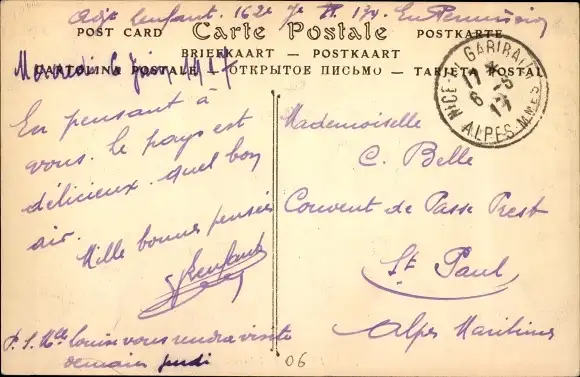 Adjt Lenfant. 162e 7e 170. En Permission
POST CARD Carte Postale POSTKARTE
BRIEFKAART — POSTKAART
CARTOLINA POSTALE — ОТКРЫТОЕ ПИСЬМО — TARJETA POSTAL
Mercredi 6 Juin 1917
NICE-PL GARIBALDI
6 -6
17
ALPES-MMES
En pensant à
vous. le pays est
délicieux. quel bon
air.
Mille bonnes pensées
Lenfant
P.S. Mlle Louise vous rendra visite
demain jeudi
Mademoiselle
C. Belle
Couvent de Passe Prest
St Paul
Alpes Maritimes
06